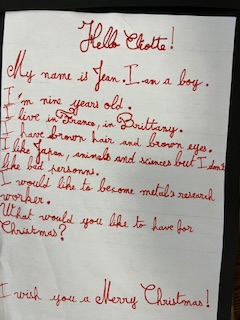 Hello Cliotte!
My name is Jean. I am a boy.
I'm nine years old.
I live in France, in Brittany.
I have brown hair and brown eyes.
I like Japan, animals and sciences but I don't
like bad personn.
I would like to become metals research
worker.
What would you like to have for
Christmas?
I wish you a Merry Christmas!